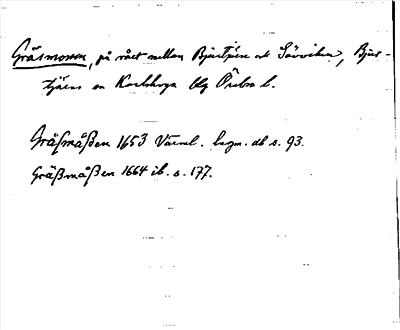 Gräsmossen, på rået mellan Bjurtjärn och Sävviken, Bjur-
tjärns sn Karlskoga bg Örebro l.
Gräſmåßen 1653 Värml. bergm. db s. 93.
Gräßmåßen 1664 ib. s. 177.